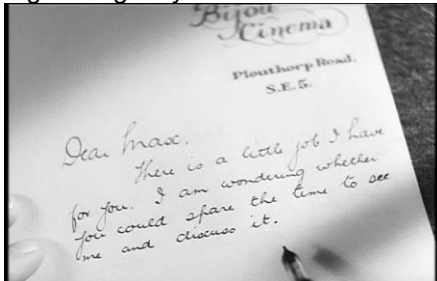 Bijou
Cinema
Plouthorp Road,
S.E.5.
Dear Max,
There is a little job I have
for you. I am wondering whether
you could spare the time to see
me and discuss it.